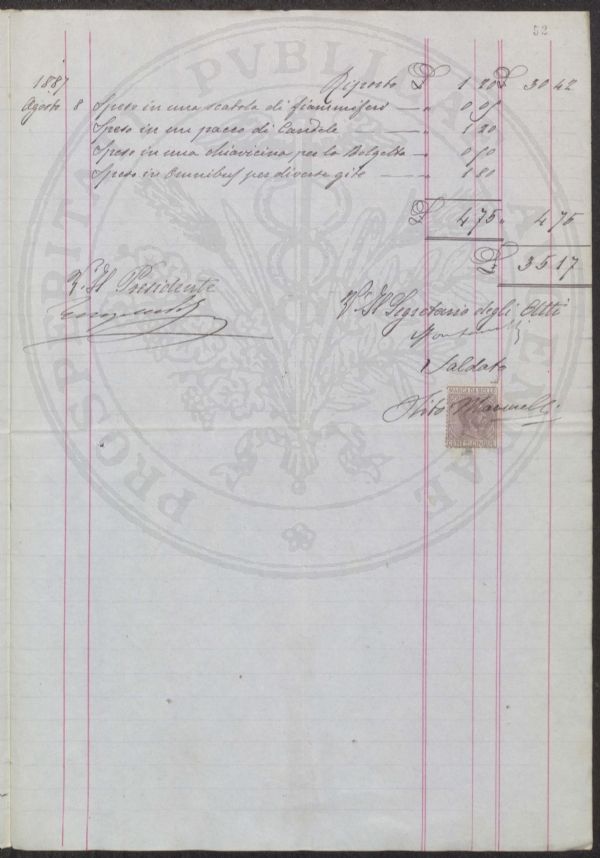 52
1887 Riporto £ 1 20 £ 30 42
Agosto 8 Speso in una scatola di fiammiferi — " 0 05
Speso in un pacco di Candele — " 1 20
Speso in una chiavicina per la — " 0 50
Speso in Omnibus per diverse gite — " 1 80
£ 4 75 " 4 75
£ 35 17
V. Il Presidente
V. Il Segretario degli Atti
Saldato
Tito Marinelli
MARCA DA BOLLO
CENT. CINQUE
PROSPERITATI PVBLICAE